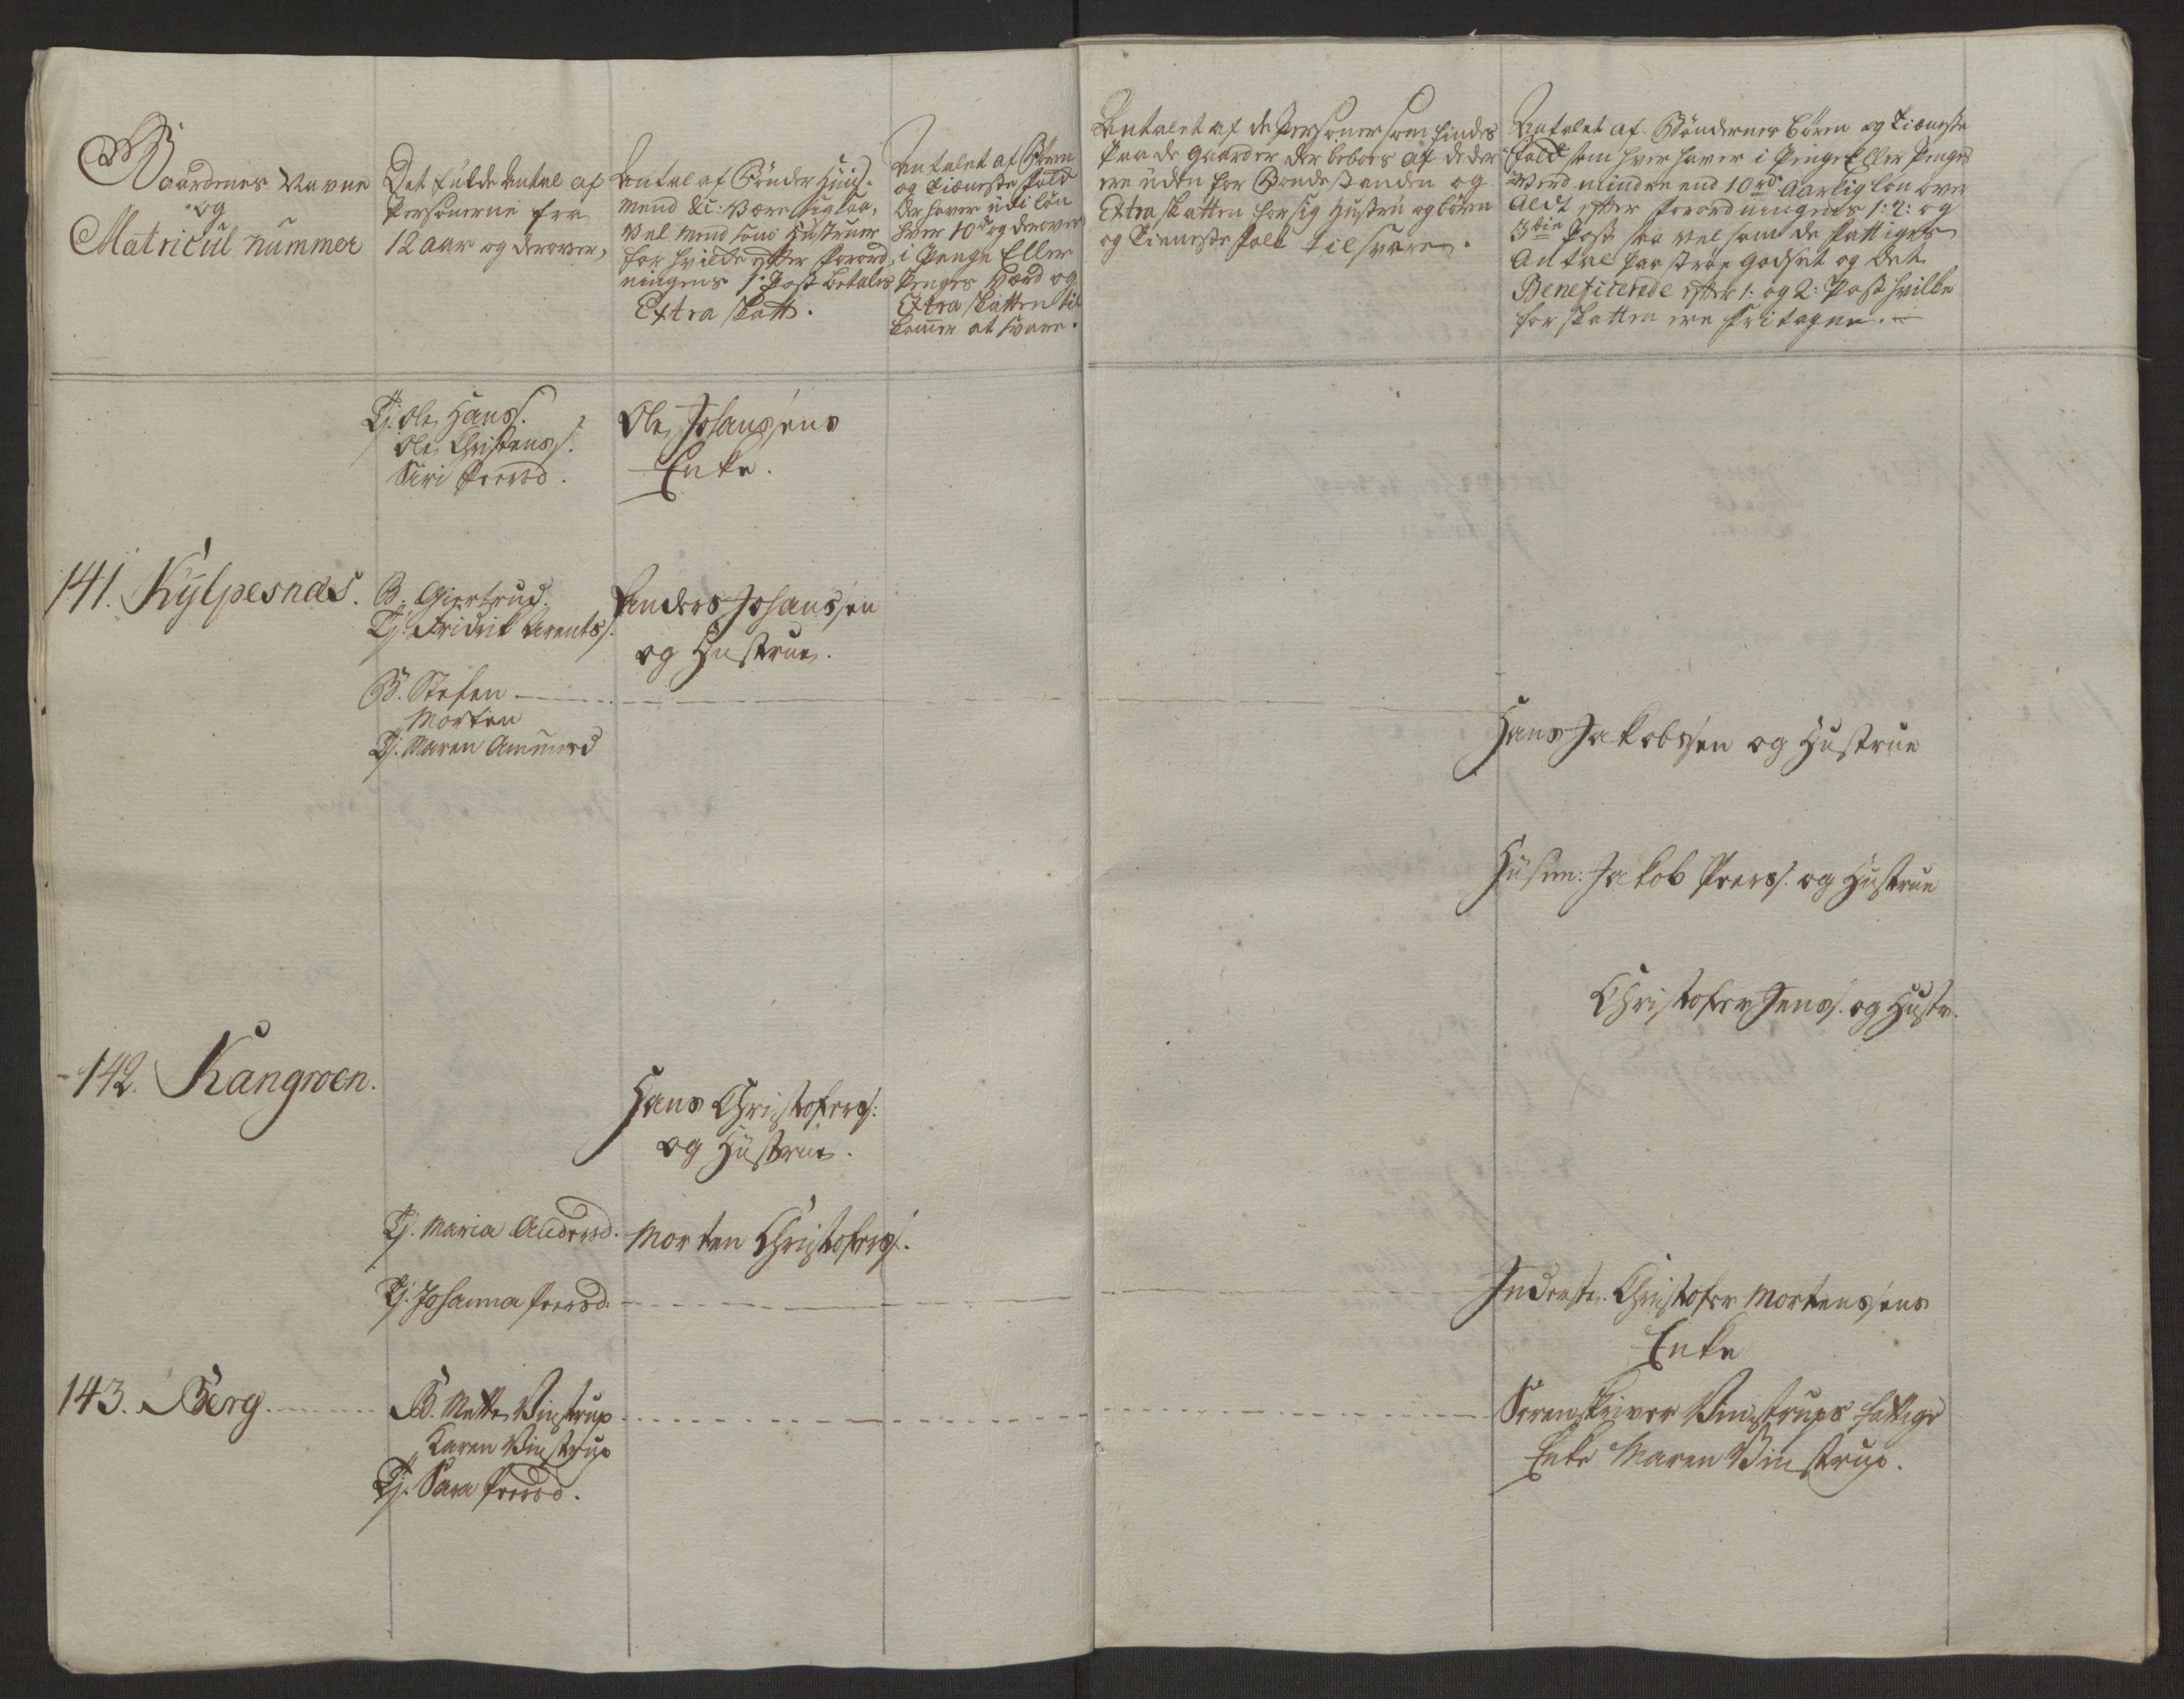 Gaardenes Navne
og
Matricul nummer
Det fulde Antal af
Personerne fra
12 aar og derover,
Antal af Bønder Huus-
mend &c: være sig saa-
vel mend som Hustruer
for hvilke efter forord-
ningens 1. Post betales
Extra skatt.
Antalet af Børn
og Tieneste folk
der haver udi løn
hver 10 rd og derover
i Penge Eller
Penges Værd og
Extra skatten til-
kommer at svare.
Antalet af de Personer som findes
paa de gaarder der beboes af de der
ere uden for Bondestanden og
Extraskatten for sig Hustru og børn
og Tienestefolk tilsvare.
Antalet af Bøndernes børn og Tieneste
folk som hver haver i Penge Eller Penges
Værd mindre end 10 rdr Aarlig løn over
Aldt efter forordningens 1: 2: og
3die Post saa vel som de fattiges
Antal paa stræe godset og det
Beneficerede efter 1: og 2: Post hvilke
for skatten ere fritagne.
Tj. Ole Hanss.
Ole Christens.
Siri Peersd.
Ole Johansens
Enke.
141. Kylpesnæs.
B. Giertrud.
Tj. Fridrik Arentss.
Anders Johansen
og Hustrue.
B. Stefen
Morten
Tj. Maren Amundsd
Hans Jakobsen og Hustrue
Husm: Jakob Peers. og Hustrue
Christofer Jens. og Hustr.
142. Kangroen.
Hans Christofers:
og Hustrue.
Tj. Maria Andersd.
Morten Christofers.
Tj. Johanna Peersd.
Inderste. Christofer Mortensens
Enke
143. Berg.
B. Mette Vinstrup
Karen Vinstrup
Tj. Sara Peersd.
Sorenskriver Vinstrups fattige
Enke Maren Vinstrup.